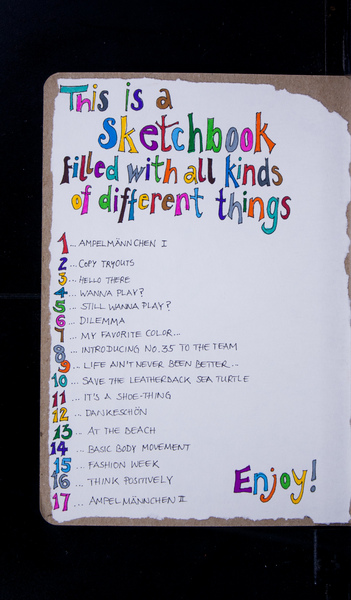 This is a
sketchbook
filled with all kinds
of different things
1... AMPELMÄNNCHEN I
2... COPY TRYOUTS
3... HELLO THERE
4... WANNA PLAY?
5... STILL WANNA PLAY?
6... DILEMMA
7... MY FAVORITE COLOR...
8... INTRODUCING NO.35 TO THE TEAM
9... LIFE AIN'T NEVER BEEN BETTER...
10... SAVE THE LEATHERBACK SEA TURTLE
11... IT'S A SHOE-THING
12... DANKESCHÖN
13... AT THE BEACH
14... BASIC BODY MOVEMENT
15... FASHION WEEK
16... THINK POSITIVELY
17... AMPELMÄNNCHEN II
Enjoy!